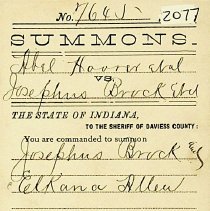 No. 7645 2077
SUMMONS
Abel Hoover et al
vs.
Josephus Brock et al
THE STATE OF INDIANA,
TO THE SHERIFF OF DAVIESS COUNTY:
You are commanded to summon
Josephus Brock &
Elkana Allen